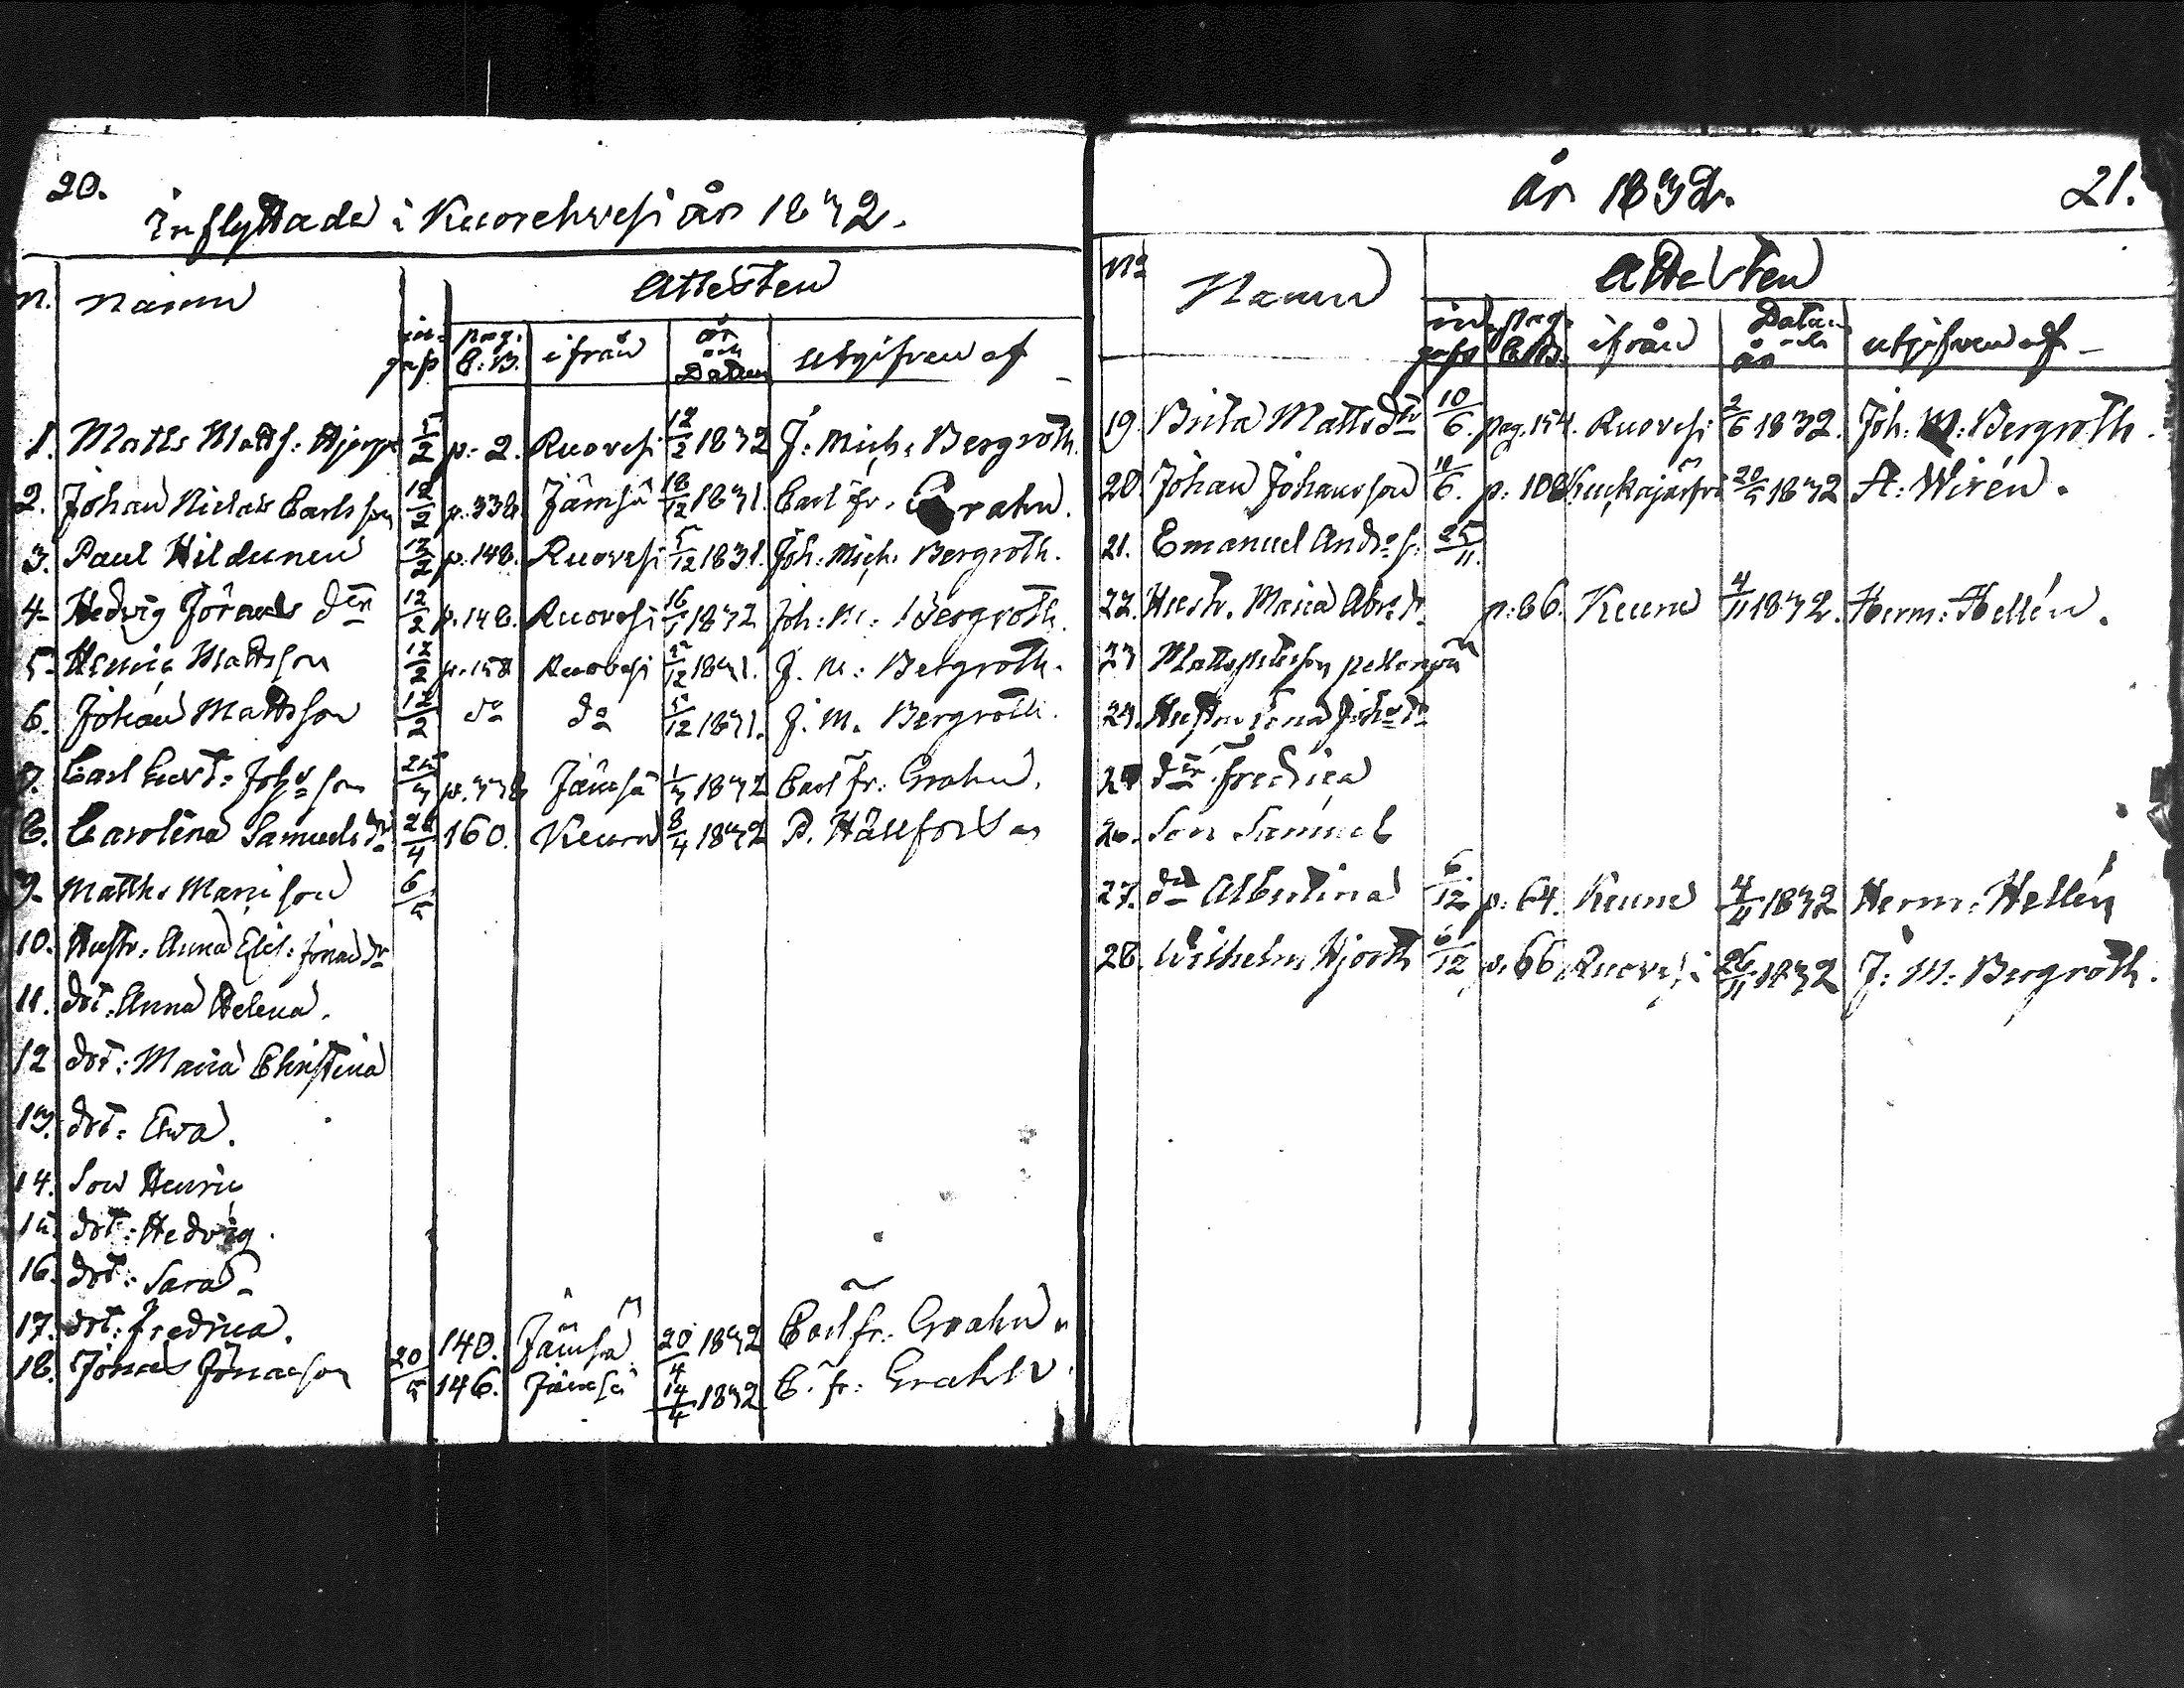 20.
Inflyttade i Kuorehvesi år 1832.
N. Namn Attesten
in-gifs pag. C:B. ifrån år och Datum utgifven af
1. Matts Matts: Hjerpe 5/2 p. 2. Ruovesi 12/2 1832 J: Mich: Bergroth.
2. Johan Niclas Carlsson 12/2 p. 338 Jämsä 18/12 1831. Carl Fr. Grahn.
3. Paul Hildunen 12/2 p. 148. Ruovesi 5/12 1831. Joh: Mich: Bergroth.
4. Hedvig Jörans dtr 12/2 p. 148. Ruovesi 16/1 1832 Joh: M: Bergroth.
5. Henric Mattsson 12/2 p. 158 Ruovesi /12 1831. J. M: Bergroth.
6. Johan Mattsson 12/2 do do 5/12 1831. J. M. Bergroth.
7. Carl Gust: Johsson 25/3 p. 338 Jämsä 1/3 1832 Carl Fr: Grahn.
8. Carolina Samuelsdr 28/4 160. Keuru 8/4 1832 P. Hällfors
9. Matths Marrison 6/5
10. Hustr. Anna Elis: Jonasdr
11. dot. Anna Helena.
12 dot: Maria Christina
13. dot: Ewa.
14. Son Henric
15. dot: Hedvig.
16. dot: Sara
17. dot: Fredrica. 140. Jämsä 20/4 1832 Carl Fr. Grahn
18. Jonas Jonasson 20/5 146. Jämsä 14/4 1832 C. Fr: Grahn.
år 1832. 21.
No Namn Attesten
in gifs pag. C.B. ifrån Datum och år utgifven af
19. Brita Mattsdtr 10/6 pag. 154. Ruovesi 2/6 1832. Joh: M: Bergroth.
20. Johan Johansson 10/6. p: 108 Kuckajärfvi 20/5 1832 A: Wirén.
21. Emanuel Andrs: 25/11.
22. Hustr. Maria Abr:dr p: 86. Keuru 4/11 1832. Herm: Hellén.
23 Matts Petersson
24. Hustru Lena Johsdr
25 dtr Fredrica
26. Son Samuel
27. dtr Albertina 6/12 p: 64. Keuru 4/11 1832 Herm: Hellén
28. Wilhelm Hjorth 6/12 p. 66 Ruovesi 26/11 1832 J: M: Bergroth.